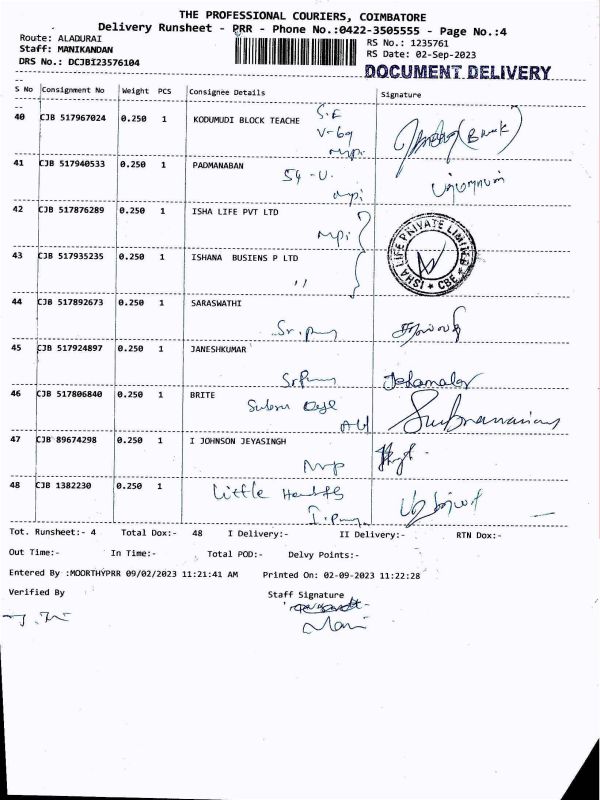 THE PROFESSIONAL COURIERS, COIMBATORE
Delivery Runsheet - PRR - Phone No.:0422-3505555 - Page No.:4
Route: ALADURAI
RS No.: 1235761
Staff: MANIKANDAN
RS Date: 02-Sep-2023
DRS No.: DCJBI23576104
DOCUMENT DELIVERY
S No Consignment No Weight PCS Consignee Details Signature
40 CJB 517967024 0.250 1 KODUMUDI BLOCK TEACHE S.E
V-69
41 CJB 517940533 0.250 1 PADMANABAN
54 -U.
42 CJB 517876289 0.250 1 ISHA LIFE PVT LTD
ISHA LIFE PRIVATE LIMITED * CBE *
43 CJB 517935235 0.250 1 ISHANA BUSIENS P LTD
44 CJB 517892673 0.250 1 SARASWATHI
45 CJB 517924897 0.250 1 JANESHKUMAR
46 CJB 517806840 0.250 1 BRITE
47 CJB 89674298 0.250 1 I JOHNSON JEYASINGH
48 CJB 1382230 0.250 1 Little
Tot. Runsheet:- 4 Total Dox:- 48 I Delivery:- II Delivery:- RTN Dox:-
Out Time:- In Time:- Total POD:- Delvy Points:-
Entered By :MOORTHYPRR 09/02/2023 11:21:41 AM Printed On: 02-09-2023 11:22:28
Verified By Staff Signature
Mani